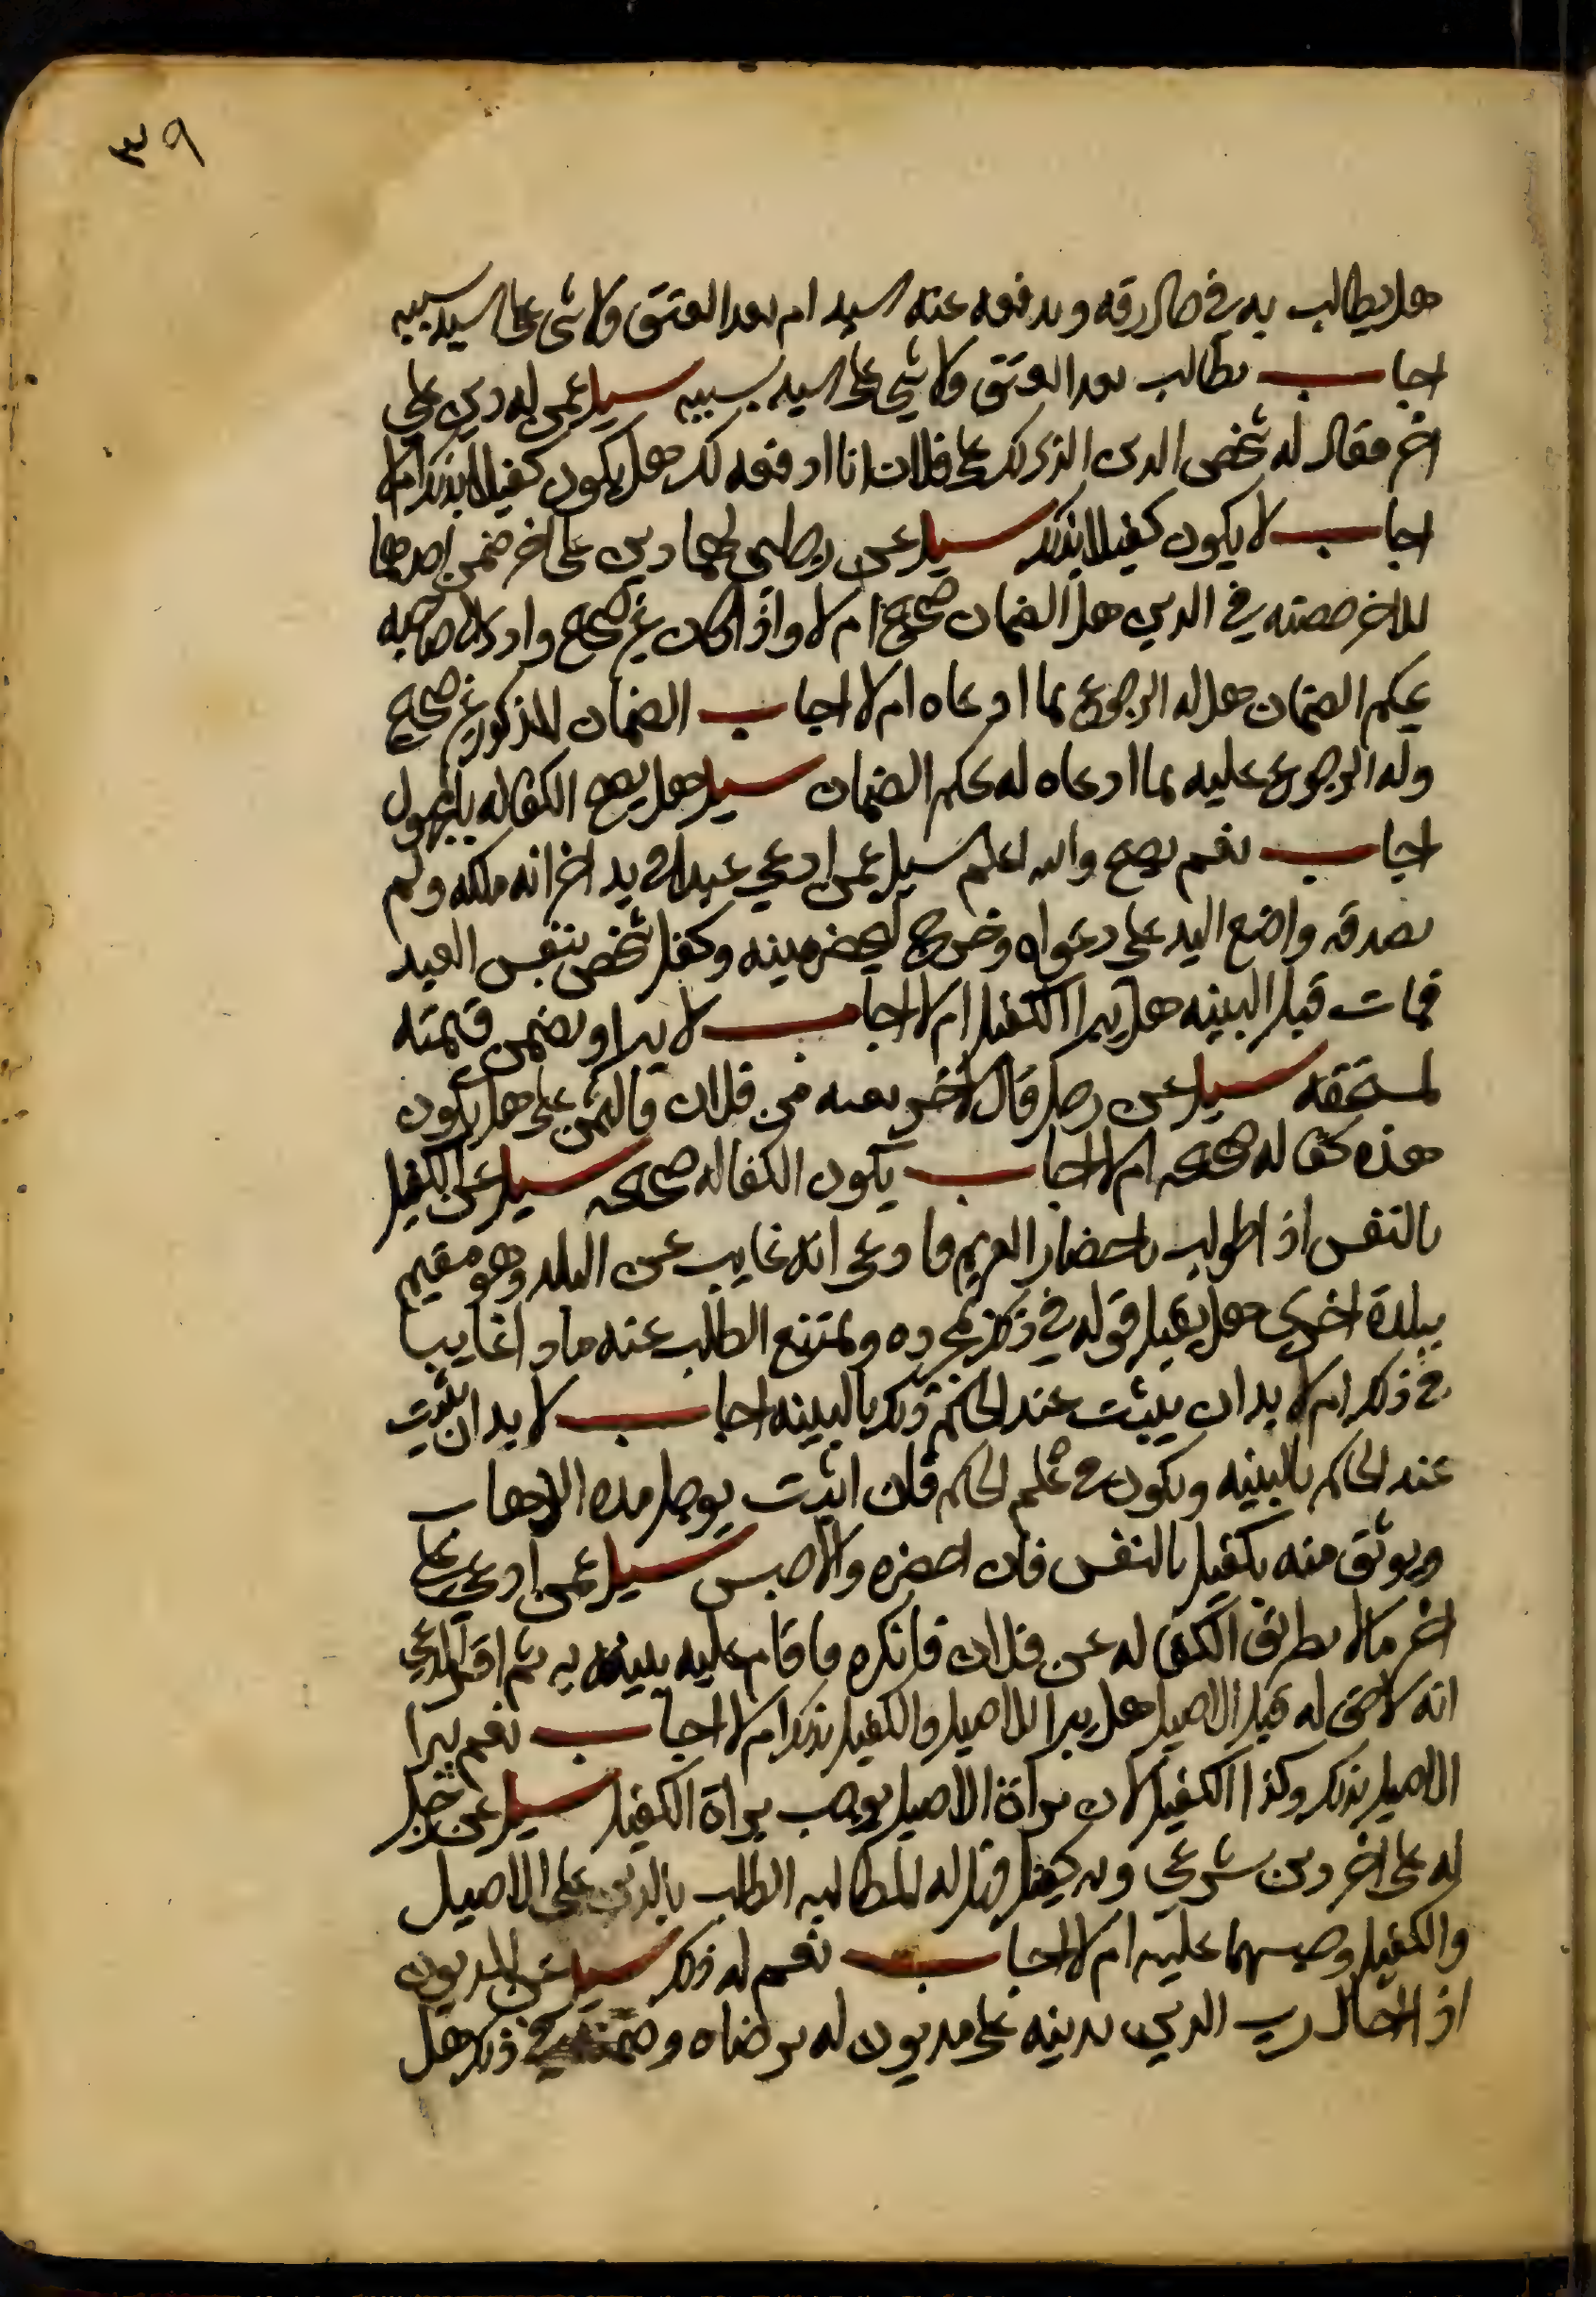 ٣٩
هل يطالب به في حال رقه ويدفعه عنه السيد ام بعد العتق ولا شي على السيد بسببه
اجاب يطالب بعد العتق ولا شي على السيد بسببه سيل عمن له دين على
اخر فقال له شخص الدين الذي لك على فلان انا ادفعه لك هل يكون كفيلا بذلك ام لا
اجاب لا يكون كفيلا بذلك سيل عن رجلين لهما دين على اخر ضمن احدهما
للاخر حصته في الدين هل الضمان صحيح ام لا واذا كان غير صحيح وادى له صاحبه
بحكم الضمان هل له الرجوع بما ادعاه ام لا اجاب الضمان المذكور غير صحيح
وله الرجوع عليه بما ادعاه له بحكم الضمان سيل هل يصح الكفاله بالمجهول
اجاب نعم يصح والله اعلم سيل عمن ادعى عبدا في يد اخر انه ملكه ولم
يصدقه واضع اليد على دعواه وخرج ليحضر بينه وكفل شخص بنفس العبد
فمات قبل البينه هل يبرا الكفيل ام لا اجاب لا يبرا ويضمن قيمته
لمستحقه سيل عن رجل قال لاخر بعه من فلان والثمن على هل يكون
هذه كفاله صحيحه ام لا اجاب يكون الكفاله صحيحه سيل عن الكفيل
بالنفس اذا طولب باحضار الغريم فادعى انه غايب عن البلد وهو مقيم
ببلدة اخرى هل يقبل قوله في ذلك بمجرده ويمتنع الطلب عنه ما دام غايبا
في ذلك ام لا بد ان يثبت عند الحاكم ذلك بالبينه اجاب لا بد ان يثبت
عند الحاكم بالبينه ويكون في علم الحاكم فان اثبت يوجل مده الذهاب
ويوثق منه بكفيل بالنفس فان احضره والا حبس سيل عمن ادعى على
اخر مالا بطريق الكفاله عن فلان فانكره فاقام عليه بينه به ثم اقر المدعي
انه لا حق له قبل الاصيل هل يبرا الاصيل والكفيل بذلك ام لا اجاب نعم يبرا
الاصيل بذلك وكذا الكفيل لان براة الاصيل يوجب براة الكفيل سيل عن رجل
له على اخر دين شرعي وله كفيل فهل له المطالبه الطلب بالدين على الاصيل
والكفيل وحبسهما عليه ام لا اجاب نعم له ذلك سيل عن المديون
اذا احال رب الدين بدينه على مديون له برضاه في ذلك هل